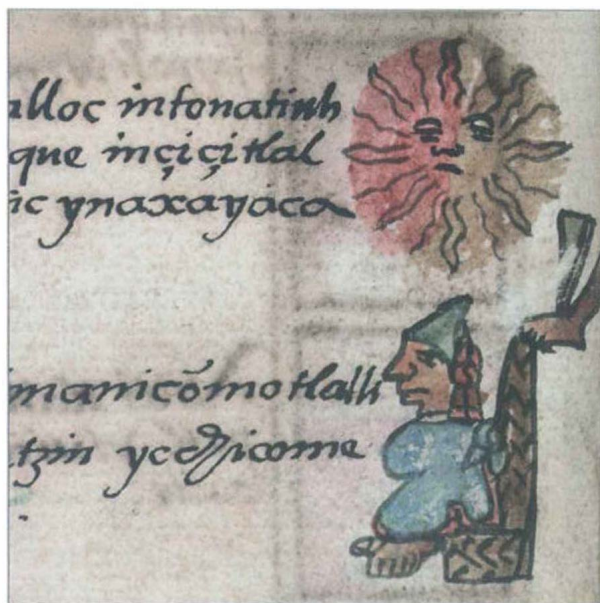 alloc intonatiuh
que inçiçitlal
ic ynaxayaca
manicōmotlalli
tzin ycchicome